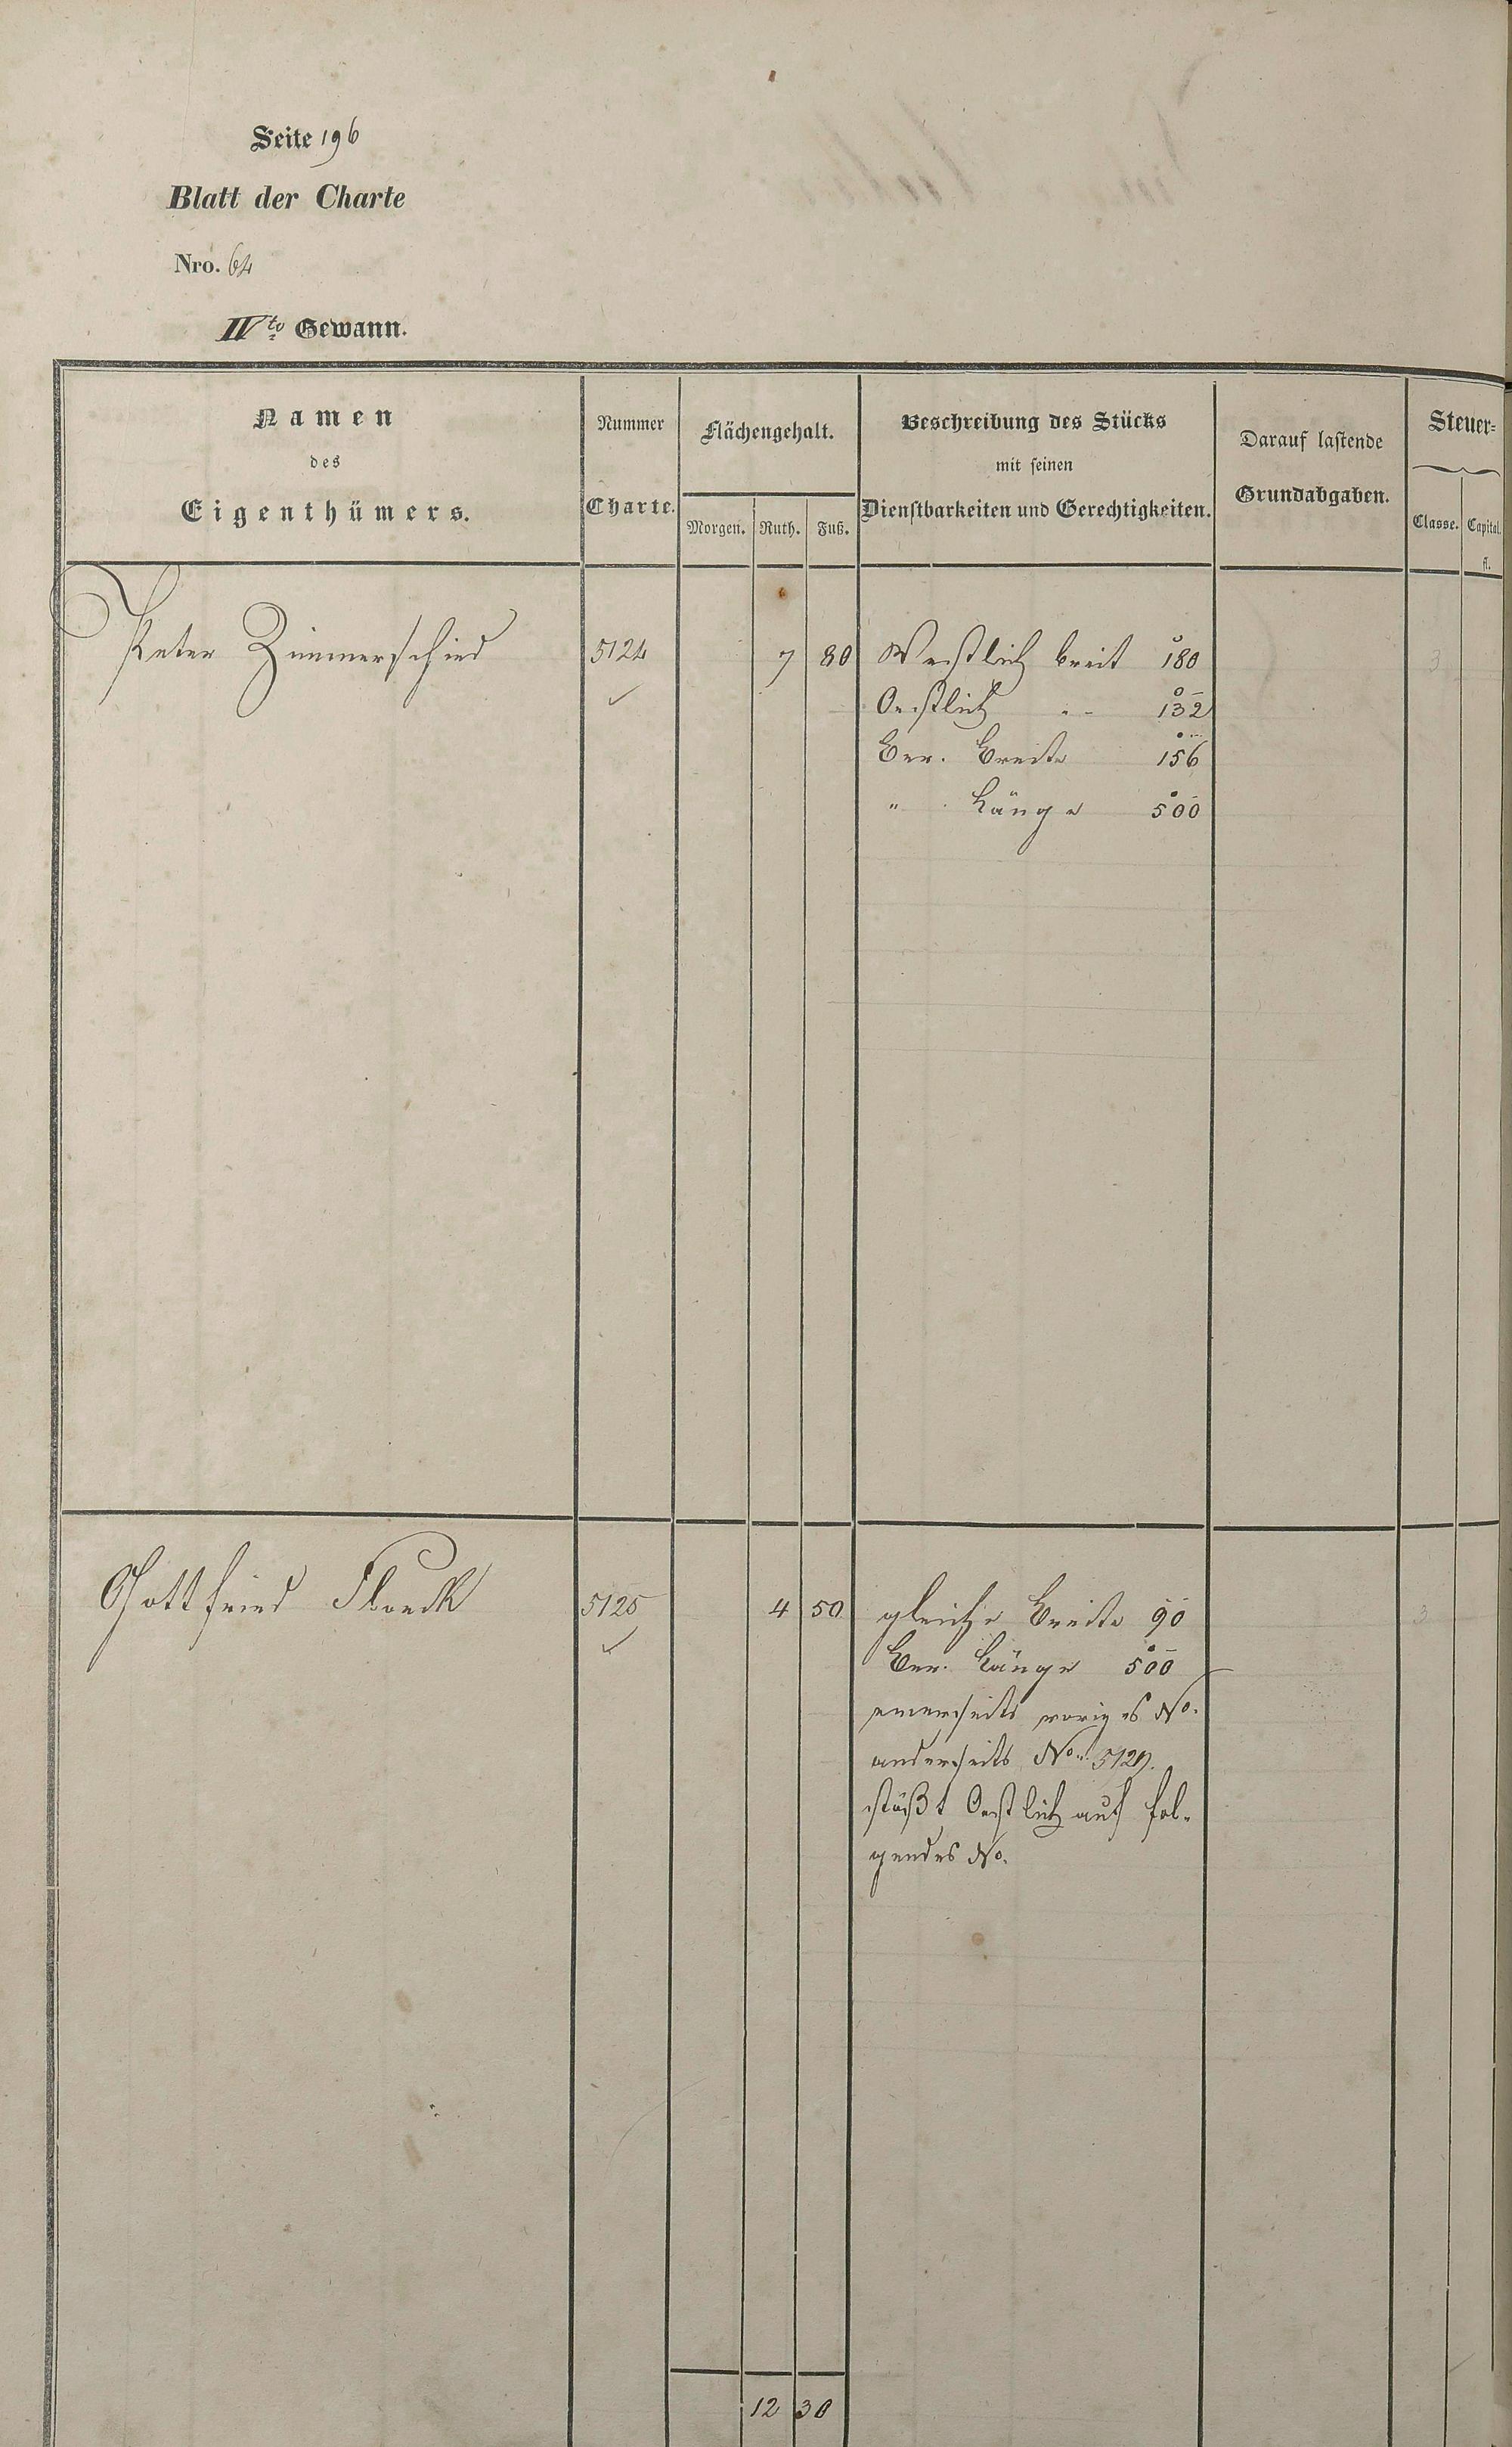 Seite 196
Blatt der Charte
Nro. 64
IVte Gewann.
Namen
des
Eigenthümers.
Nummer
Charte.
Flächengehalt.
Morgen. Ruth. Fuß.
Beschreibung des Stücks
mit seinen
Dienstbarkeiten und Gerechtigkeiten.
Darauf lastende
Grundabgaben.
Steuer-
Classe. Capital.
fl.
Peter Zimmerschied 5124 7 80 Westlich breit 180 3
Oestlich " 132
Ber. Breite 156
" Länge 500
Gottfried Floeck 5125 4 50 gleiche Breite 90 3
Ber. Länge 500
einerseits voriges No.
anderseits No. 5127.
stößt Oestlich auf fol-
gendes No.
12 30